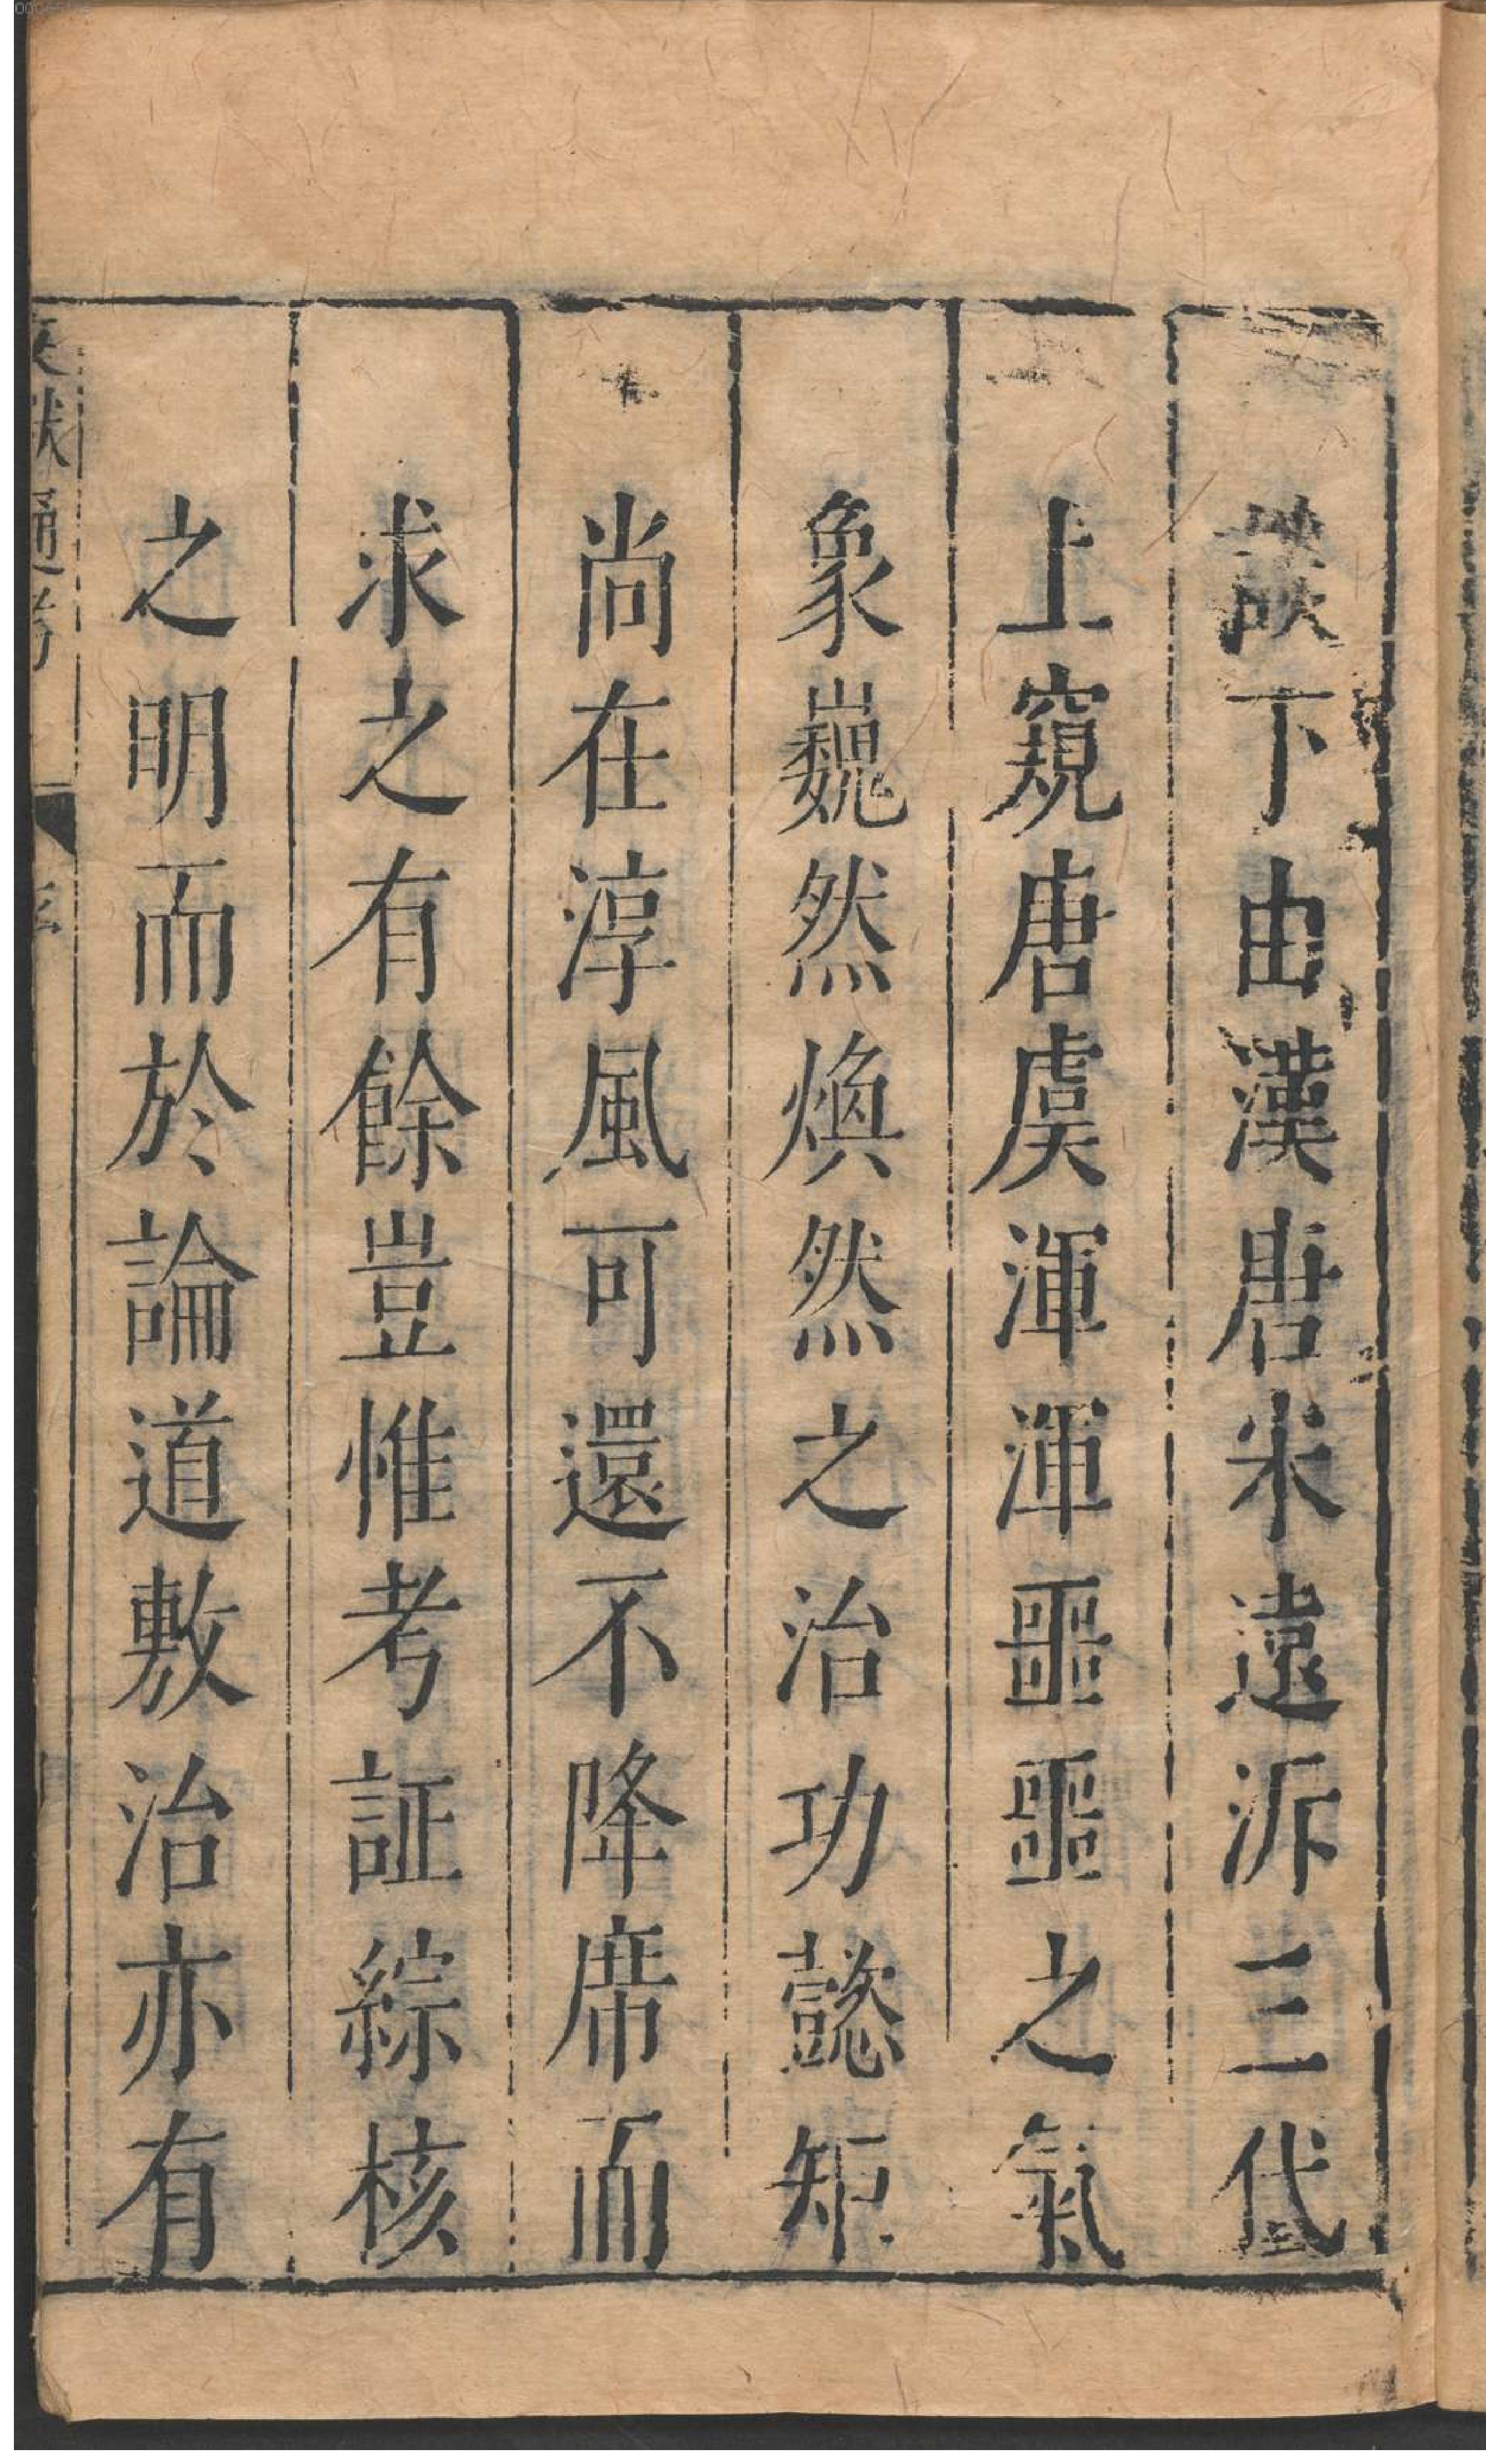 談下由漢唐宋遠泝三代
上窺唐虞渾渾噩噩之氣
象巍然煥然之治功懿矩
尚在淳風可還不降席而
求之有餘豈惟考証綜核
之明而於論道敷治亦有
文獻通考 序